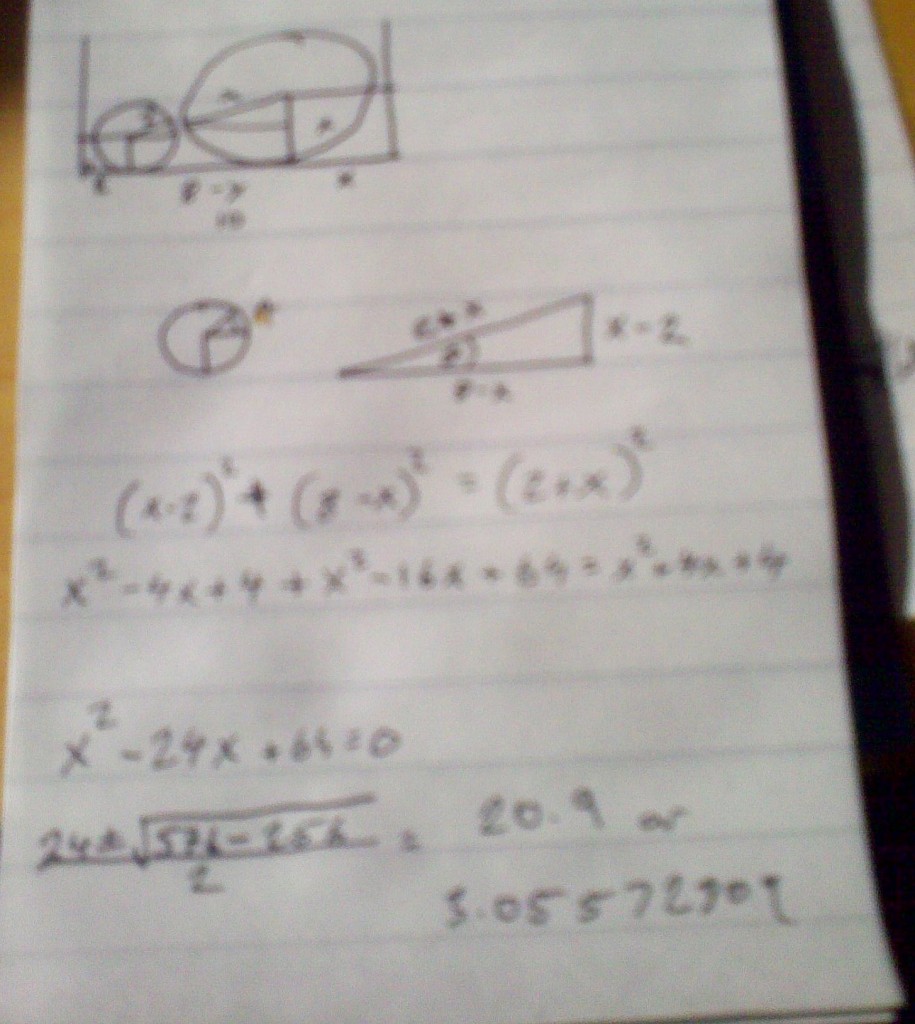 2
x
x
2
8 - x
x
10
2
2+x
x-2
8-x
(x-2)² + (8-x)² = (2+x)²
x² - 4x + 4 + x² - 16x + 64 = x² + 4x + 4
x² - 24x + 64 = 0
24±√576-256 =
2
20.9 or
3.05572809